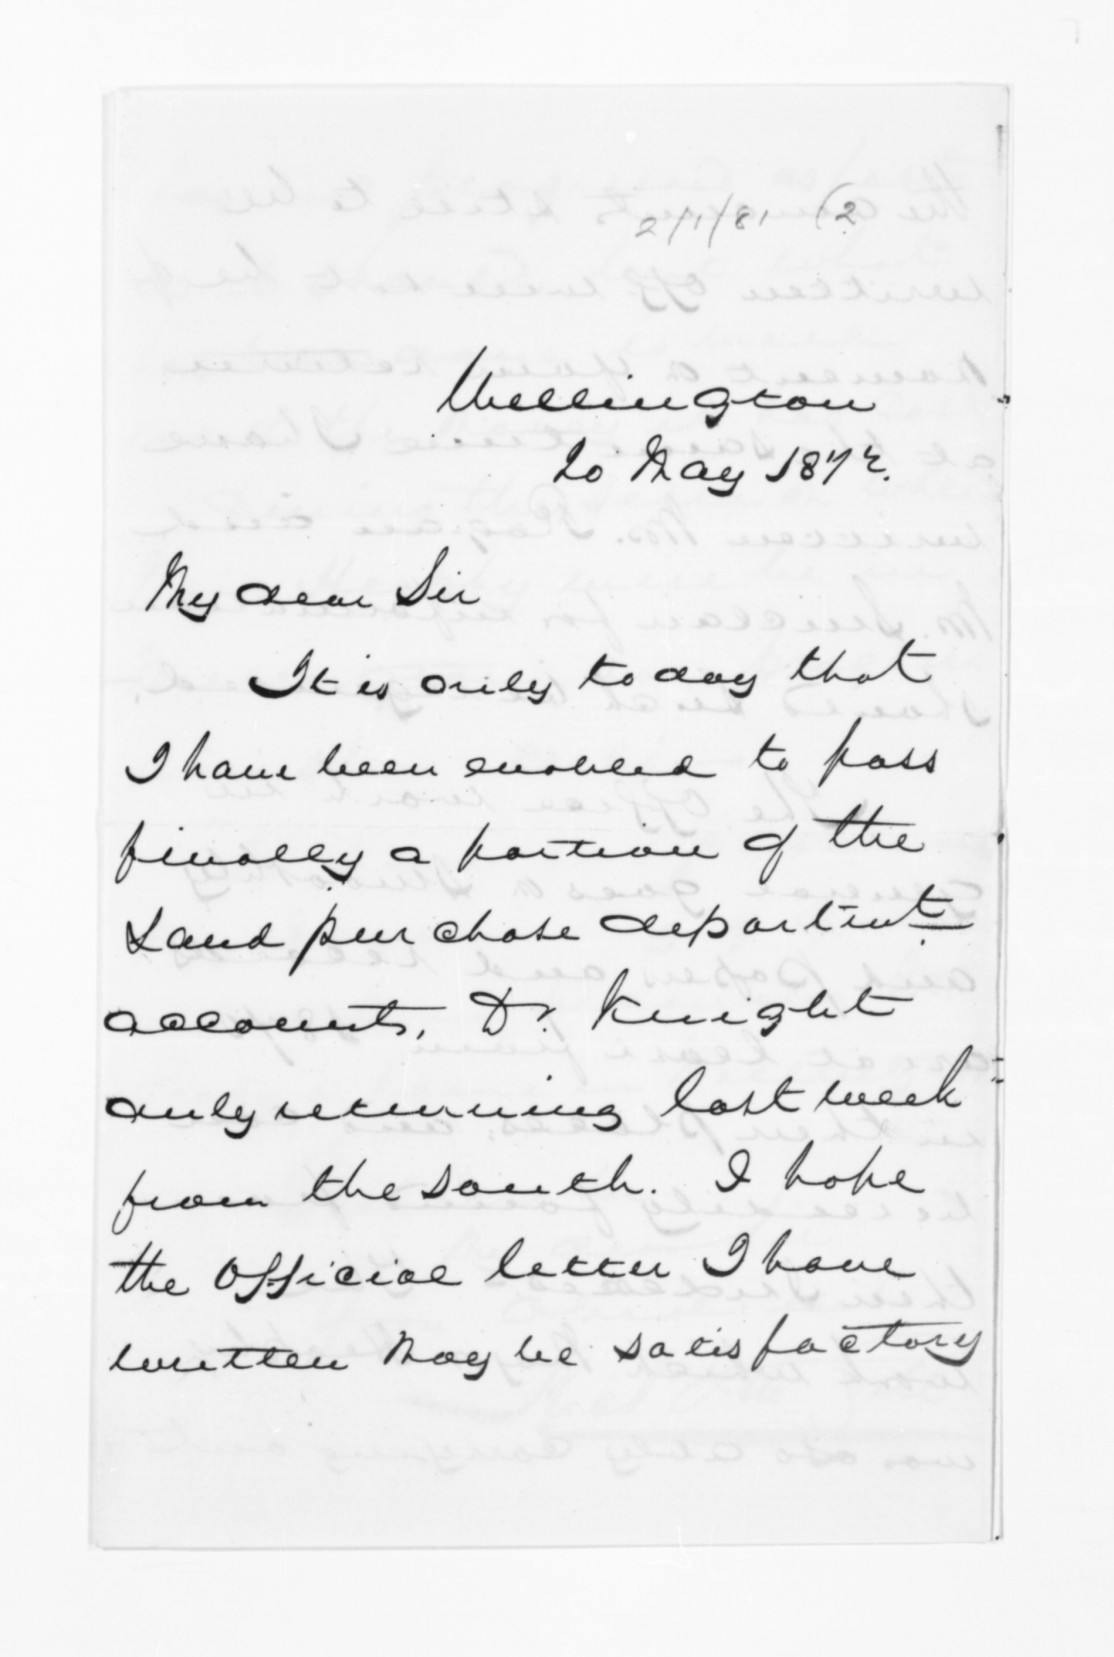 2/1/81 (2
Wellington
20 May 1872.
My dear Sir
It is only to day that
I have been enabled to pass
finally a portion of the
Land purchase departmt.
accounts, Dr. Knight
only returning last week
from the South. I hope
the Official letter I have
written may be satisfactory